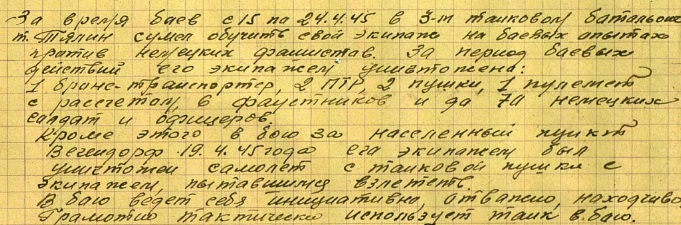 За время боев с 15 по 24.4.45 в 3-м танковом батальоне
т. Тялин сумел обучить свой экипаж на боевых опытах
против немецких фашистов. За период боевых
действий его экипажем уничтожено:
1 броне-транспортер, 2 ПТР, 2 пушки, 1 пулемет
с рассчетом, 6 фаустников и до 70 немецких
солдат и офицеров.
Кроме этого в бою за населенный пункт
19.4.45 года его экипажем был
уничтожен самолет с танковой пушки с
экипажем, пытавшимся взлететь.
В бою ведет себя инициативно, отважно, находчиво.
Грамотно тактически использует танк в бою.